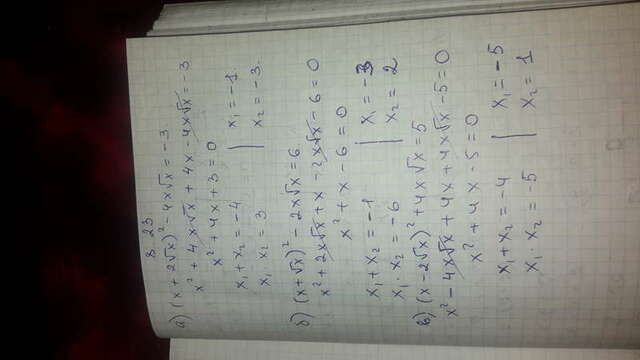 8.23
а) (x + 2√x)² - 4x√x = -3
x² + 4x√x + 4x - 4x√x = -3
x² + 4x + 3 = 0
x₁ + x₂ = -4 | x₁ = -1.
x₁ x₂ = 3 | x₂ = -3.
б) (x + √x)² - 2x√x = 6
x² + 2x√x + x - 2x√x - 6 = 0
x² + x - 6 = 0
x₁ + x₂ = -1 | x₁ = -3
x₁ · x₂ = -6 | x₂ = 2
в) (x - 2√x)² + 4x√x = 5
x² - 4x√x + 4x + 4x√x - 5 = 0
x² + 4x - 5 = 0
x₁ + x₂ = -4 | x₁ = -5
x₁ x₂ = -5 | x₂ = 1